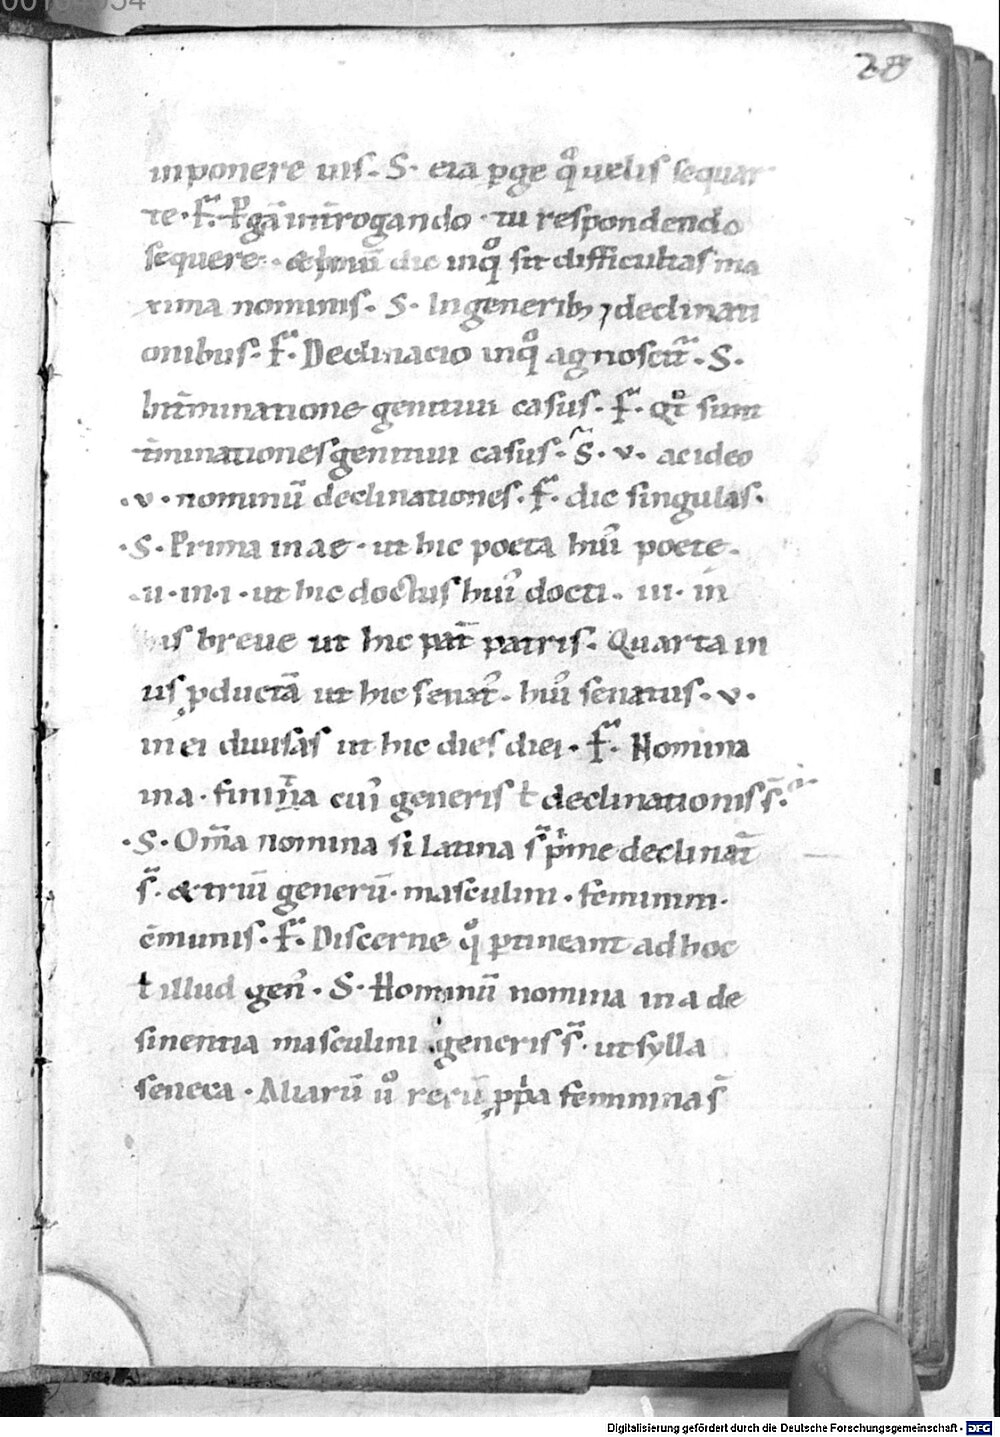 28
inponere uis. S. eia ꝑge qͦ uelis sequar
te. Fͬ. Ꝑgā int̄rogando. tu respondendo
sequere. & pͥmū dic inqͦ sit difficultas ma
xima nominis. S. In generib; ⁊ declinati
onibus. Fͬ. Declinacio inqͦ agnoscit̄. S.
In t̄minatione genitiui casus. Fͬ. Qͦt sunt
t̄minationes genitiui casus. S̄. v. ac ideo
.v. nominū declinationes. Fͬ. dic singulas.
.S. Prima in ae. ut hic poeta hui᷒ poete.
.ii. in. i. ut hic doctus hui᷒ docti. iii. in
is breue ut hic pat̄ patris. Quarta in
us ꝓductā ut hic senat᷒. hui᷒ senatus. v.
in ei diuisas ut hic dies diei. Fͬ. Nomina
in a. finīta cui᷒ generis ł declinationis s̄.
.S. Om̄a nomina si latina s̄ pͥme declinat̄
s̄. & triū generū. masculini. feminini.
c̄munis. Fͬ. Discerne qͦ ꝑtineant ad hoc
ł illud gen᷒. S. Hominū nomina in a de
sinentia masculini generis s̄. ut sylla
seneca. Aliarū uͦ rerū ꝓpͥa feminina s̄
Digitalisierung gefördert durch die Deutsche Forschungsgemeinschaft - DFG